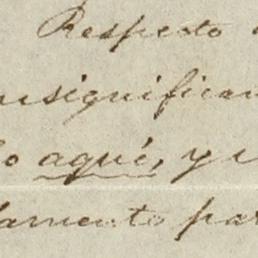 Respecto
nsignifican
o aquí, y
damente par